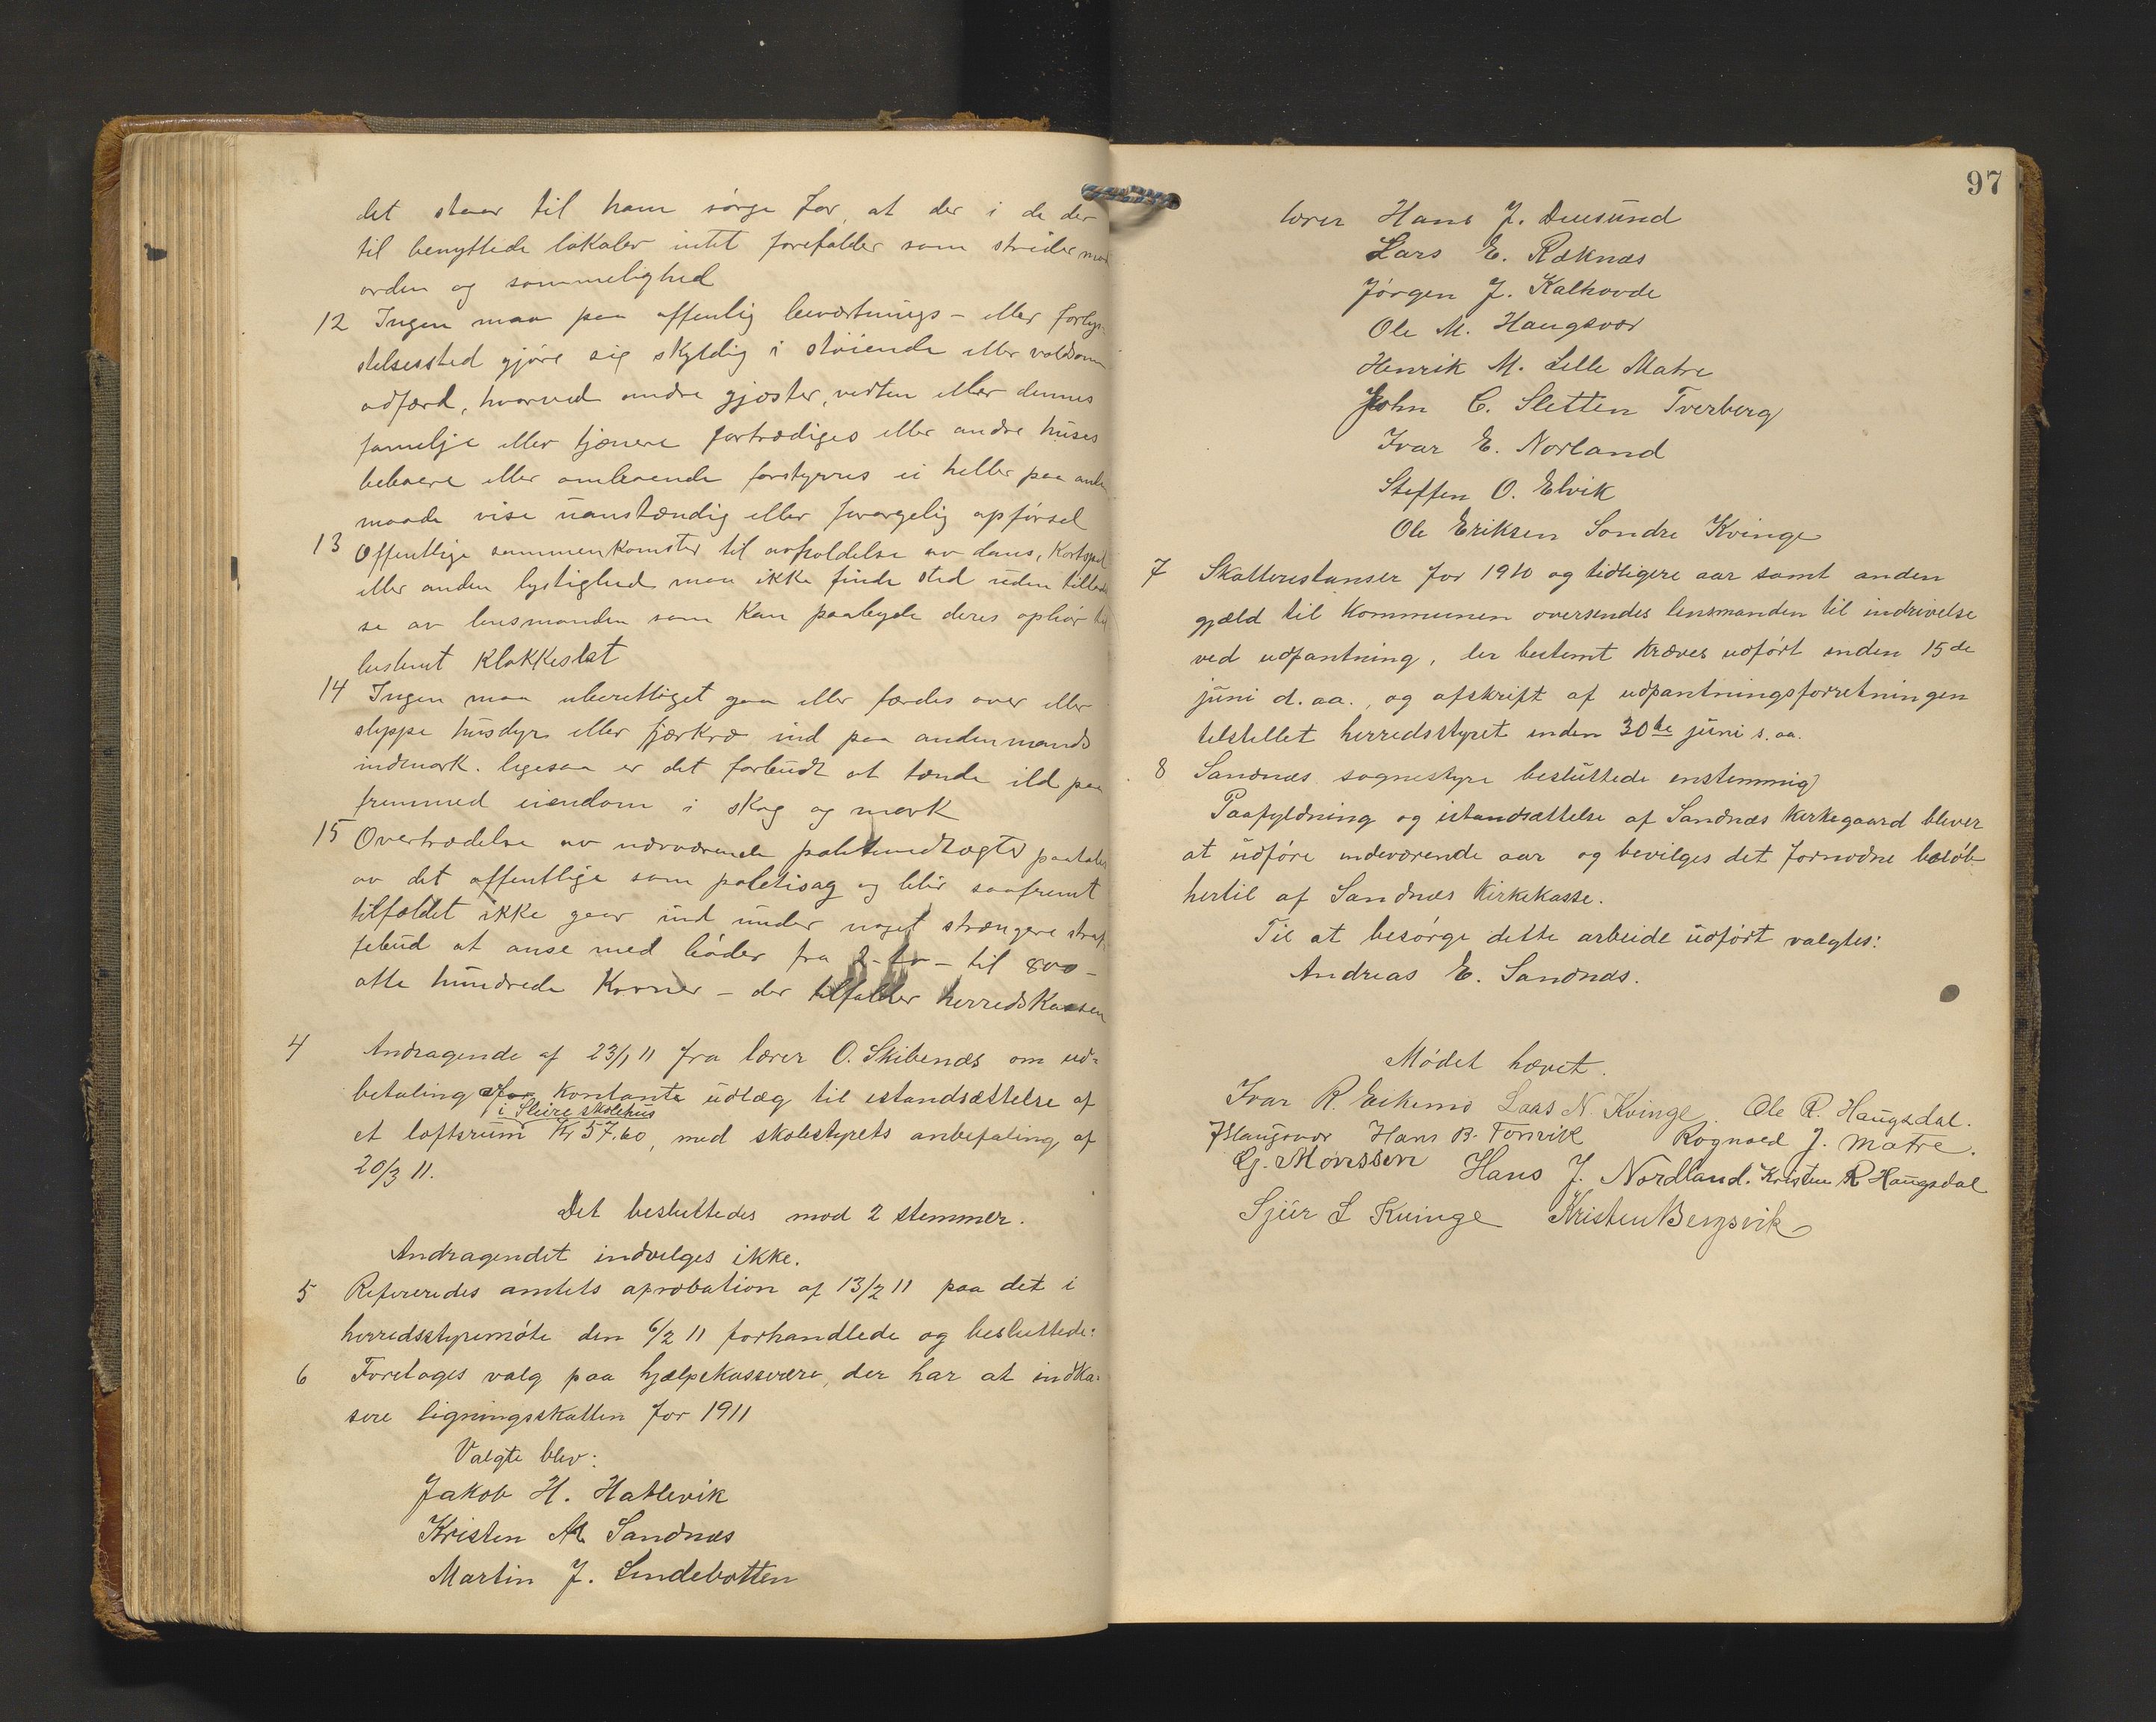 det staar til ham sørge for, at der i de der
til benyttede lokaler intet forefalder som strider mod
orden og sømmelighed
12 Ingen maa paa offenlig beværtnings- eller forlys-
telsessted gjøre sig skyldig i støiende eller voldsom
adfærd, hvorved andre gjæster, verten eller dennes
familje eller tjenere fortrædiges eller andre huses
beboere eller omboende forstyrres ei heller paa anden
maade vise uanstændig eller forargelig opførsel
13 Offentlige sammenkomster til avholdelse av dans, Kortspil
eller anden lystighed maa ikke finde sted uden tilladel
se av lensmanden som Kan paabyde deres ophør til
bestemt Klokkeslet
14 Ingen maa uberettiget gaa eller færdes over eller
slyppe husdyr eller fjærkræ ind paa andenmands
indmark. ligesaa er det forbudt at tænde ild paa
fremmed eiendom i skog og mark
15 Overtrædelse av nærværende politivedtægter paatales
av det offentlige som politisag og blir saafremt
tilfældet ikke gaar ind under noget strængere straf-
febud at anse med bøder fra 2 - to - til 800 -
otte hundrede Kroner - der tilfalder herredsKassen
4 Andragende af 23/1 11 fra lærer O. Skibenæs om ud-
betaling af Kontante udlæg til istandsættelse af
i Sleire skolehus
et loftsrum Kr 57.60, med skolestyrets anbefaling af
20/3 11.
Det besluttedes mod 2 stemmer.
Andragendet indvilges ikke.
5 Refereredes amtets aprobation af 13/2 11 paa det i
herredsstyremøte den 6/2 11 forhandlede og besluttede:
6 Foretages valg paa hjælpekasserere, der har at indka-
sere ligningsskatten for 1911
Valgte blev:
Jakob H. Hatlevik
Kristen M Sandnæs
Martin J. Lindebotten
97
lærer Hans J. Duesund
Lars E. Ræknæs
Jørgen J. Kalhovde
Ole M. Haugsvær
Henrik M. Lille Matre
John C. Sletten Tverberg
Ivar E. Norland
Steffen O. Elvik
Ole Eriksen Søndre Kvinge
7 Skatterestanser for 1910 og tidligere aar samt anden
gjæld til Kommunen oversendes lensmanden til indrivelse
ved udpantning, der bestemt kræves udført inden 15de
juni d. aa., og afskrift af udpantningsforretningen
tilstillet herredsstyret inden 30te juni s. aa.
8 Sandnæs sognestyre besluttede enstemmig
Paafyldning og istandsættelse af Sandnæs Kirkegaard blever
at udføre indeværende aar og bevilges det fornødne beløb
hertil af Sandnæs Kirkekasse.
Til at besørge dette arbeide udført valgtes:
Andreas E. Sandnæs.
Mødet hævet.
Ivar R. Eikemo Lars N. Kvinge. Ole R. Haugsdal.
J Haugsvær Hans B. Tonvik Rognald J. Matre.
G. Monssen Hans J. Nordland. Kristen R Haugsdal
Sjur L Kvinge Kristen Bergsvik